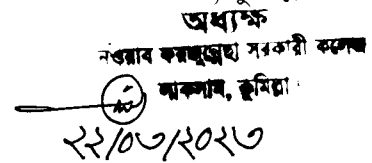 অধ্যক্ষ
নওয়াব ফয়জুন্নেছা সরকারী কলেজ
লাকসাম, কুমিল্লা।
২২/০৩/২০২৩